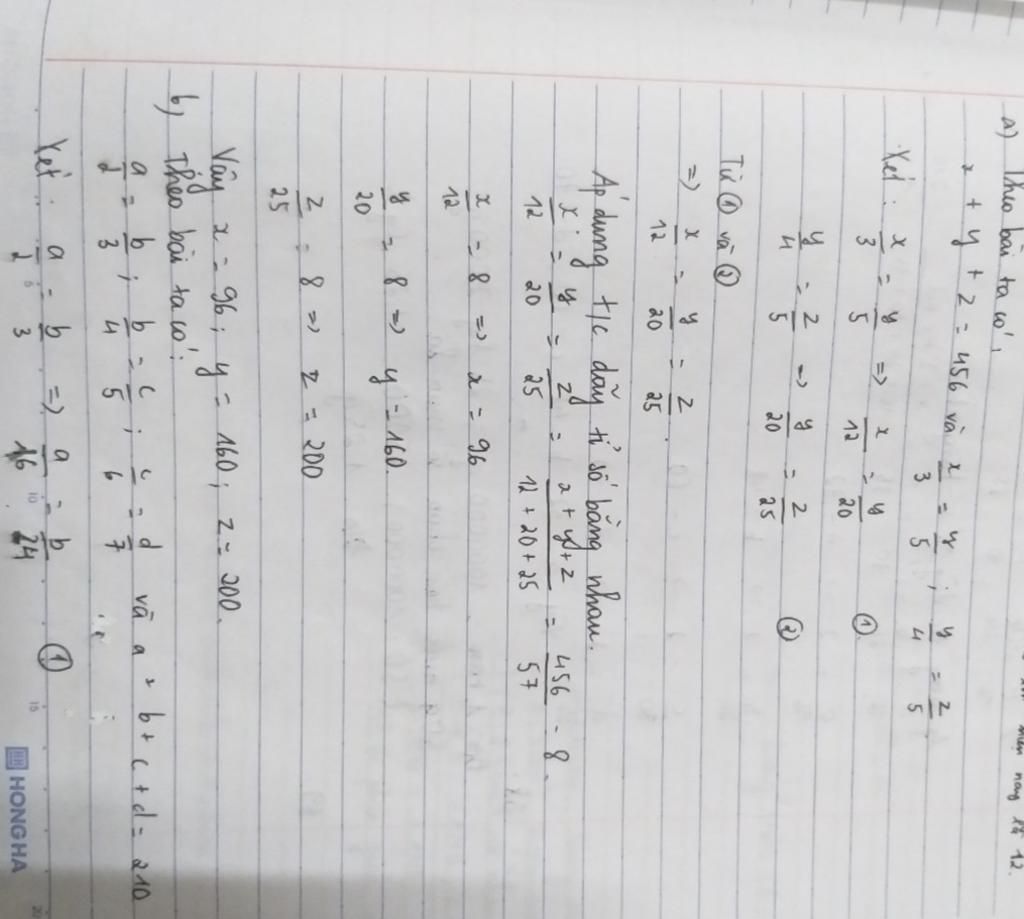 mến nay là 12.
a) Theo bài ta có,
x + y + z = 456 và x/3 = y/5 ; y/4 = z/5
Xét : x/3 = y/5 => x/12 = y/20 ①
y/4 = z/5 => y/20 = z/25 ②
Từ ① và ②
=> x/12 = y/20 = z/25 .
Áp dụng t/c dãy tỉ số bằng nhau.
x/12 = y/20 = z/25 = x + y + z/12 + 20 + 25 = 456/57 = 8 .
x/12 = 8 => x = 96
y/20 = 8 => y = 160
z/25 = 8 => z = 200
Vậy x = 96 ; y = 160 ; z = 200.
b) Theo bài ta có:
a/2 = b/3 ; b/4 = c/5 ; c/6 = d/7 và a + b + c + d = 210
Xét : a/2 = b/3 => a/16 = b/24 ①
HONG HA